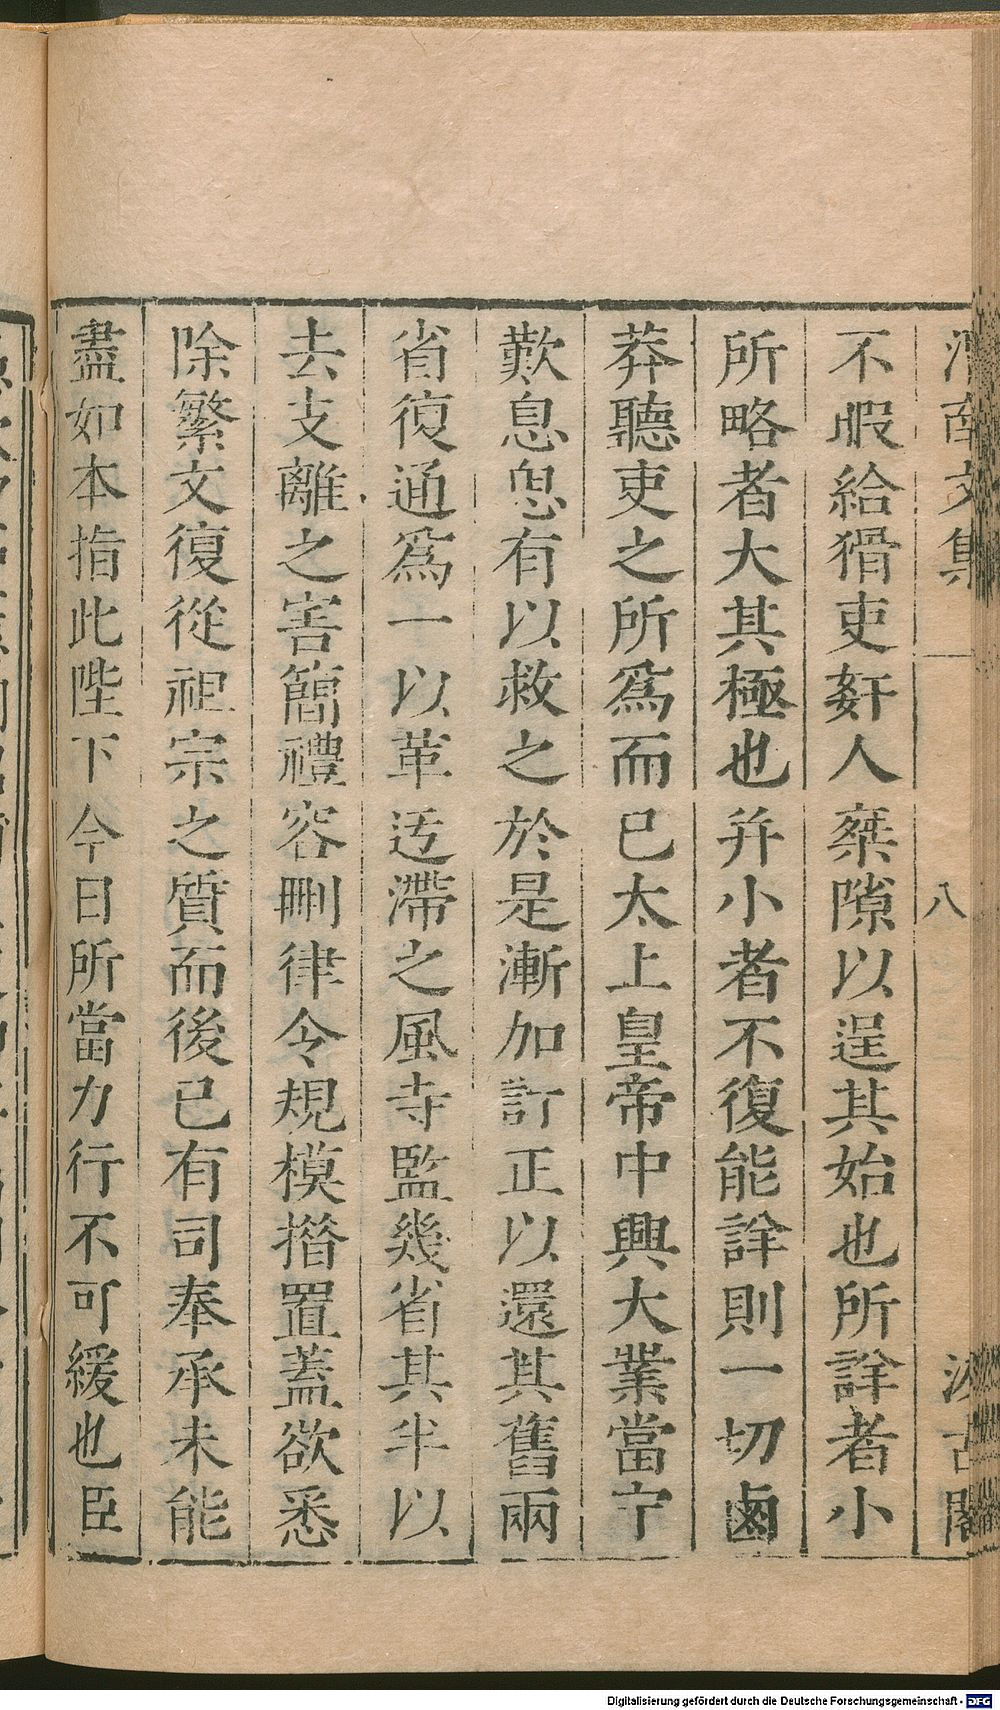 文集
八
古閣
不暇給猾吏姧人椉隙以逞其始也所詳者小
所略者大其極也并小者不復能詳則一切鹵
莽聽吏之所爲而已太上皇帝中興大業當宁
歎息思有以救之於是漸加訂正以還其舊兩
省復通爲一以革迃滯之風寺監幾省其半以
去支離之害簡禮容刪律令規模措置蓋欲悉
除繁文復從祖宗之質而後已有司奉承未能
盡如本指此陛下今日所當力行不可緩也臣
Digitalisierung gefördert durch die Deutsche Forschungsgemeinschaft - DFG